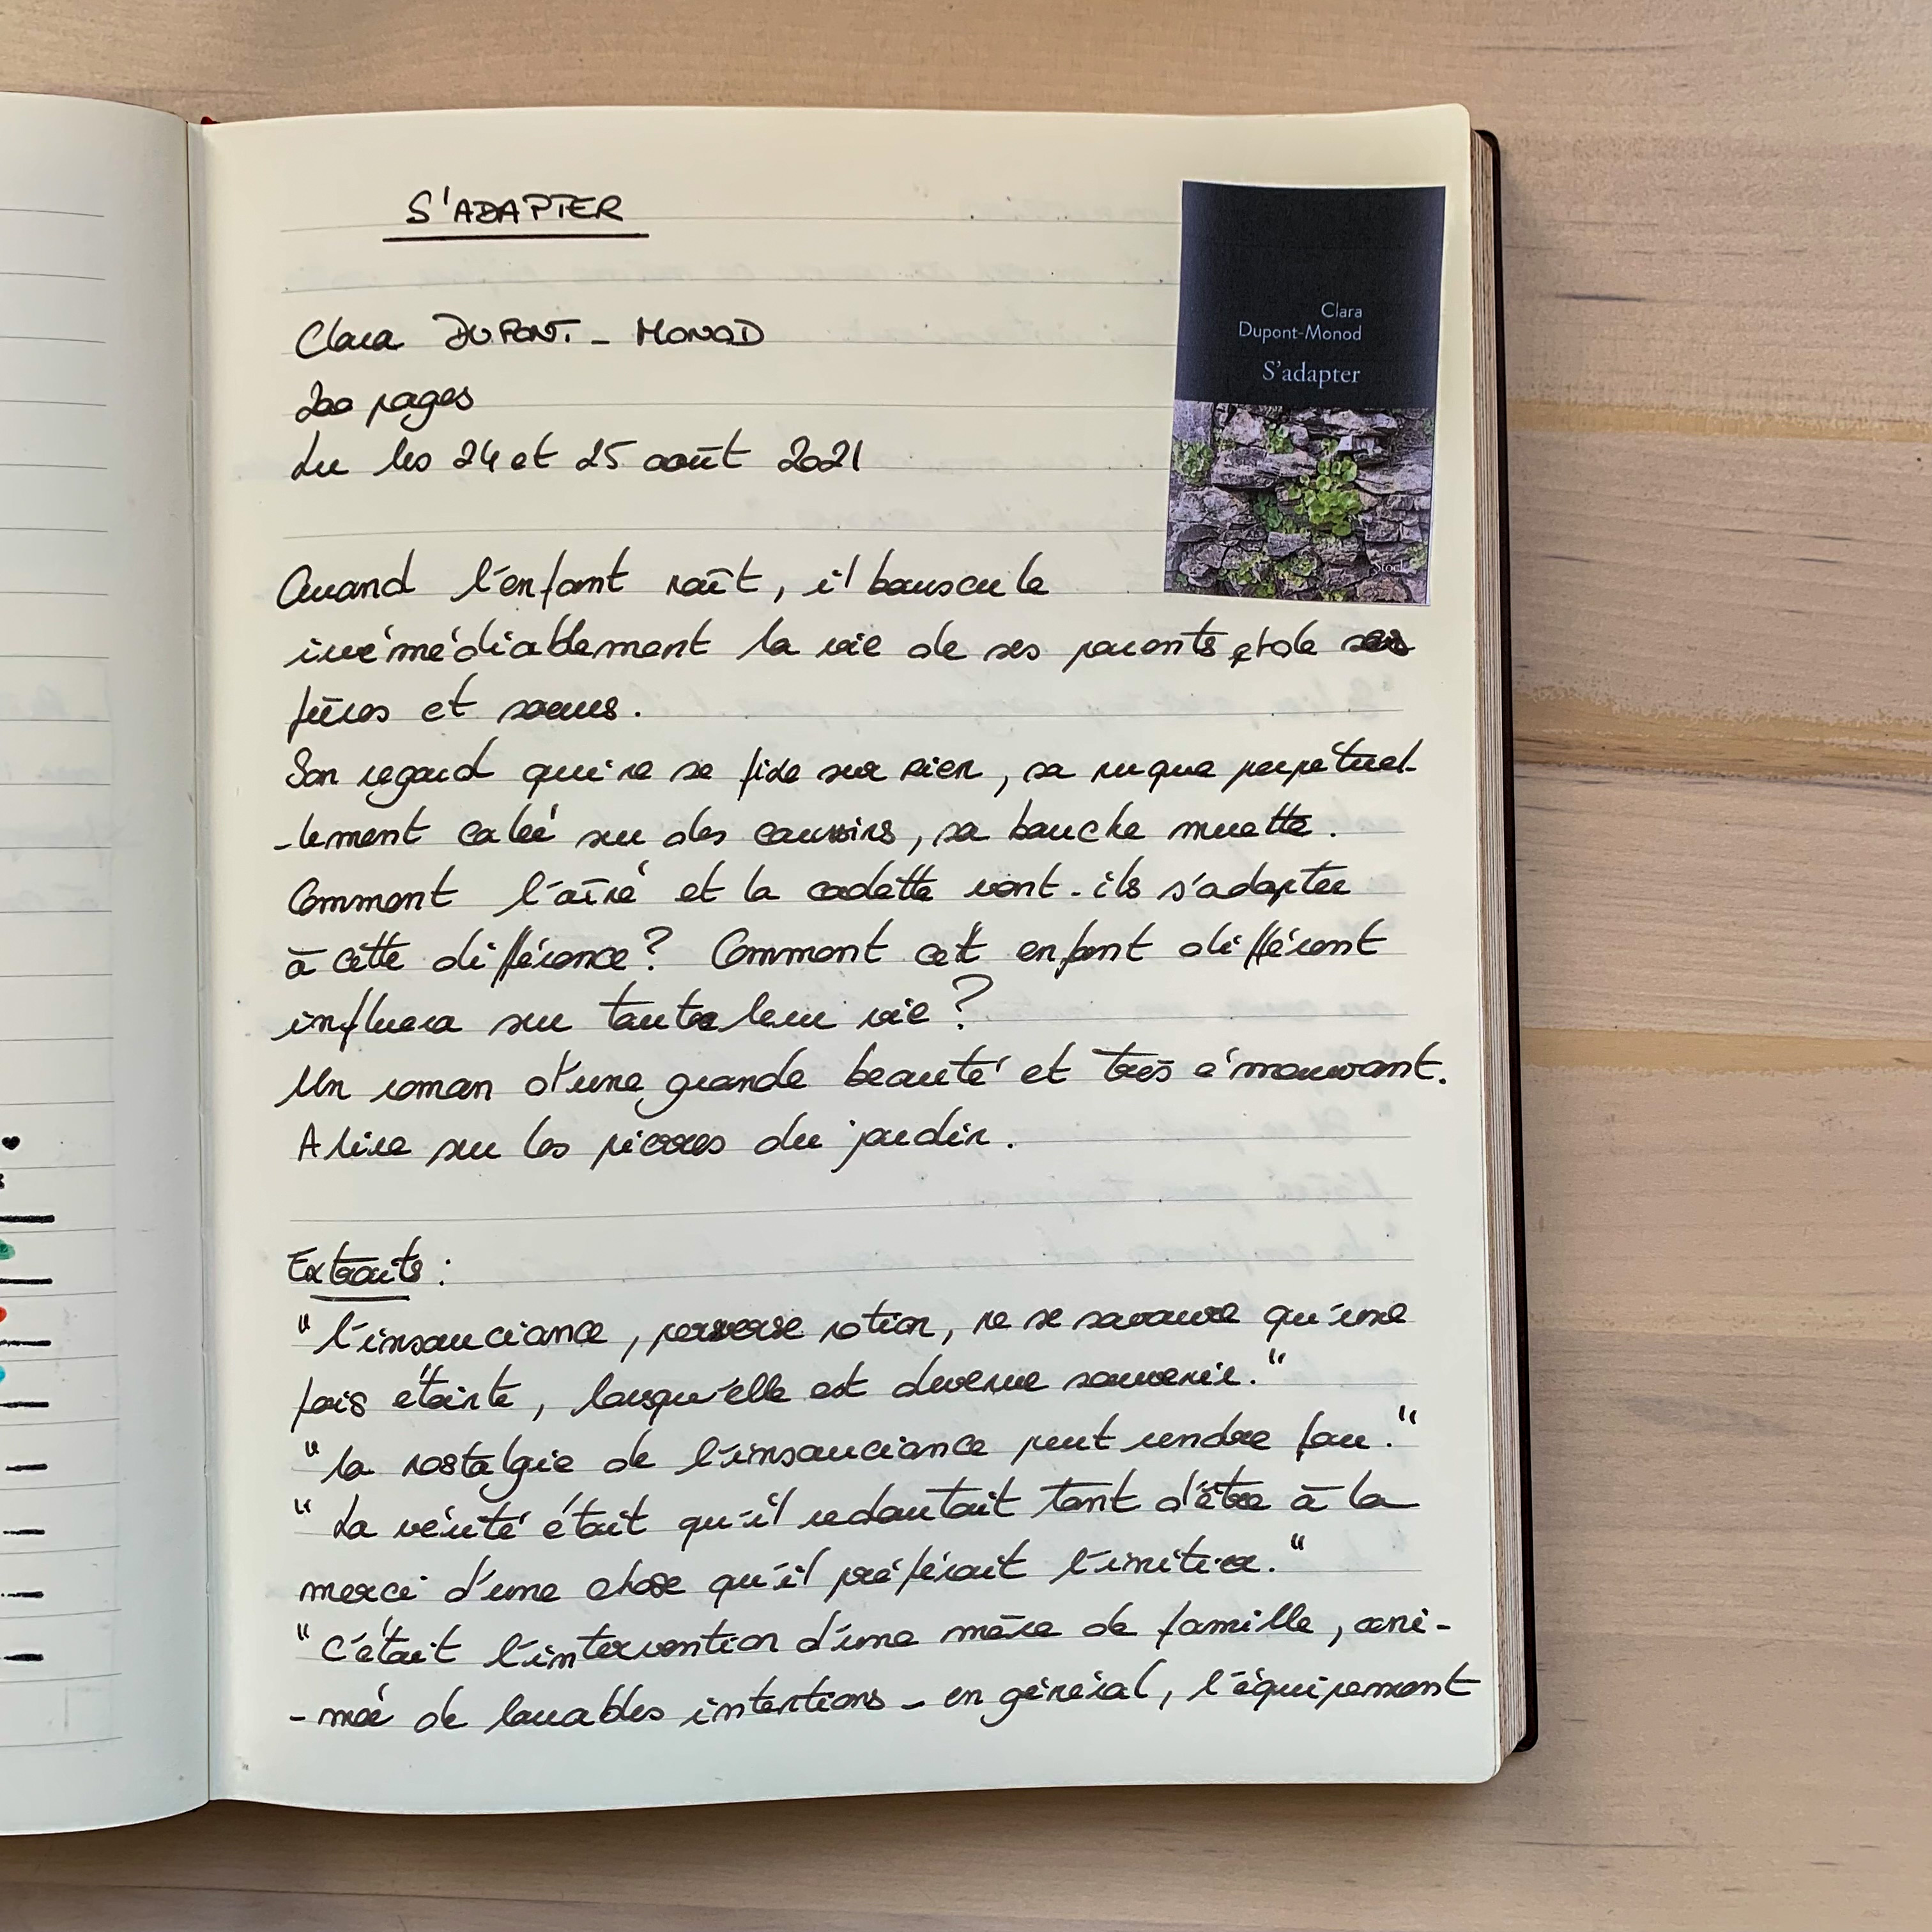 S'ADAPTER
Clara DUPONT-MONOD
200 pages
Lu les 24 et 25 août 2021
Clara
Dupont-Monod
S'adapter
Stock
Quand l'enfant naît, il bouscule
irrémédiablement la vie de ses parents et de ses
frères et soeurs.
Son regard qui ne se fixe sur rien, sa nuque perpétuel-
-lement calée sur des coussins, sa bouche muette.
Comment l'aîné et la cadette vont-ils s'adapter
à cette différence? Comment cet enfant différent
influera sur toute leur vie?
Un roman d'une grande beauté et très émouvant.
A lire sur les pierres du jardin.
Extraits :
"l'insouciance, perverse notion, ne se savoure qu'une
fois éteinte, lorsqu'elle est devenue souvenir."
"la nostalgie de l'insouciance peut rendre fou."
"La vérité était qu'il redoutait tant d'être à la
merci d'une chose qu'il préférait l'imiter."
"C'était l'intervention d'une mère de famille, ani-
-mée de louables intentions - en général, l'équipement